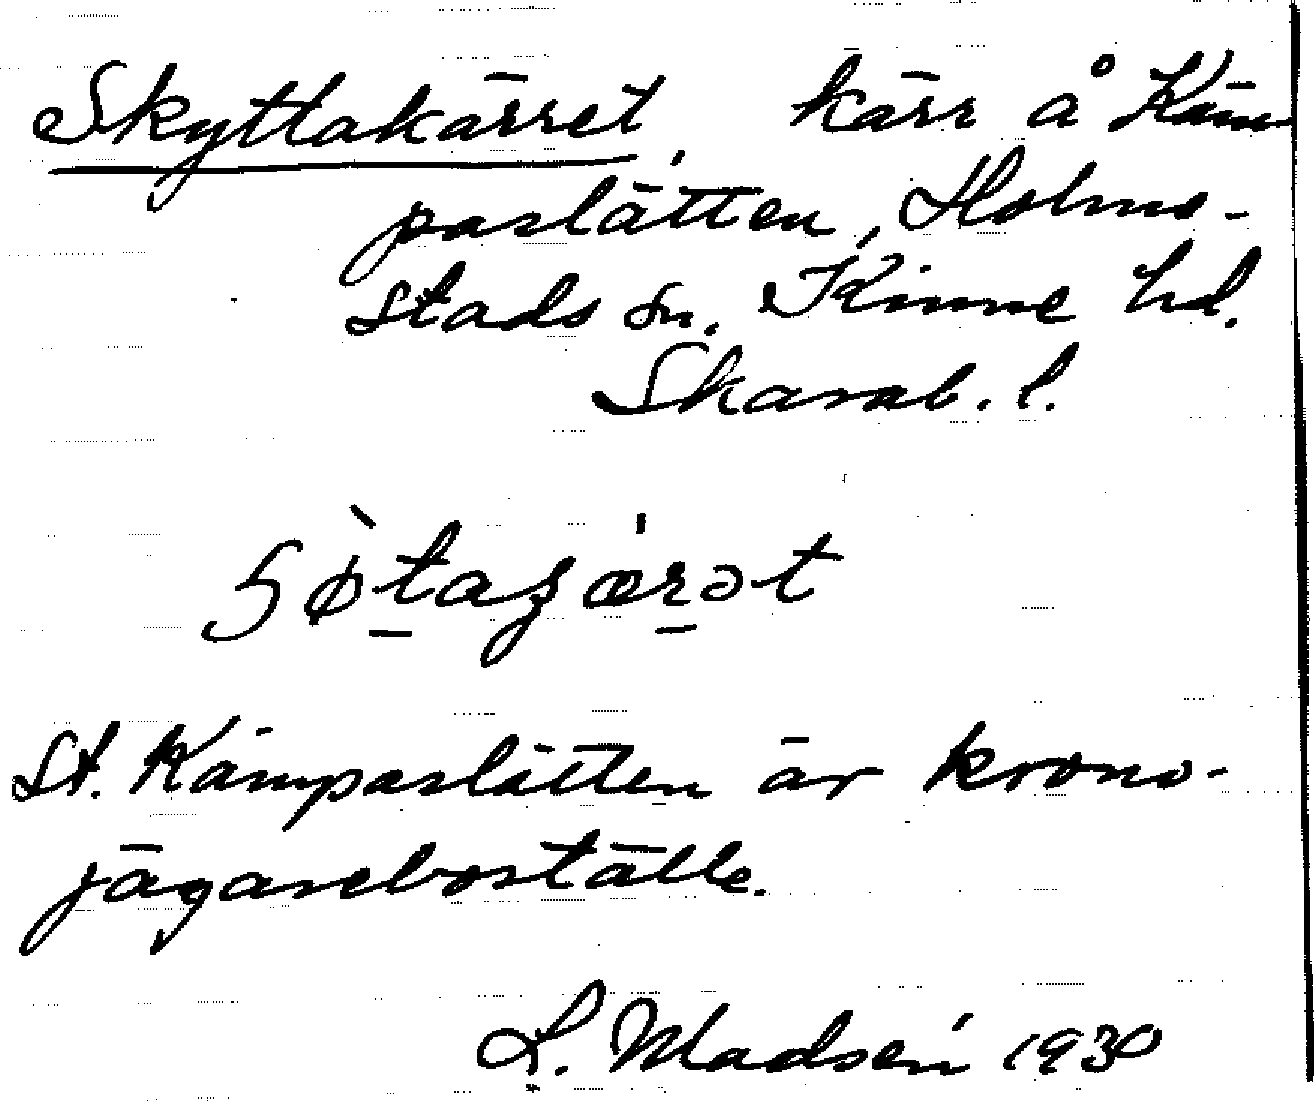 Skyttakärret, kärr å Käm
paslätten, Holme-
stads sn. Kinne hd.
Skarab. l.
St. Kämpaslätten är krono-
jägareboställe.
L. Madsén 1930